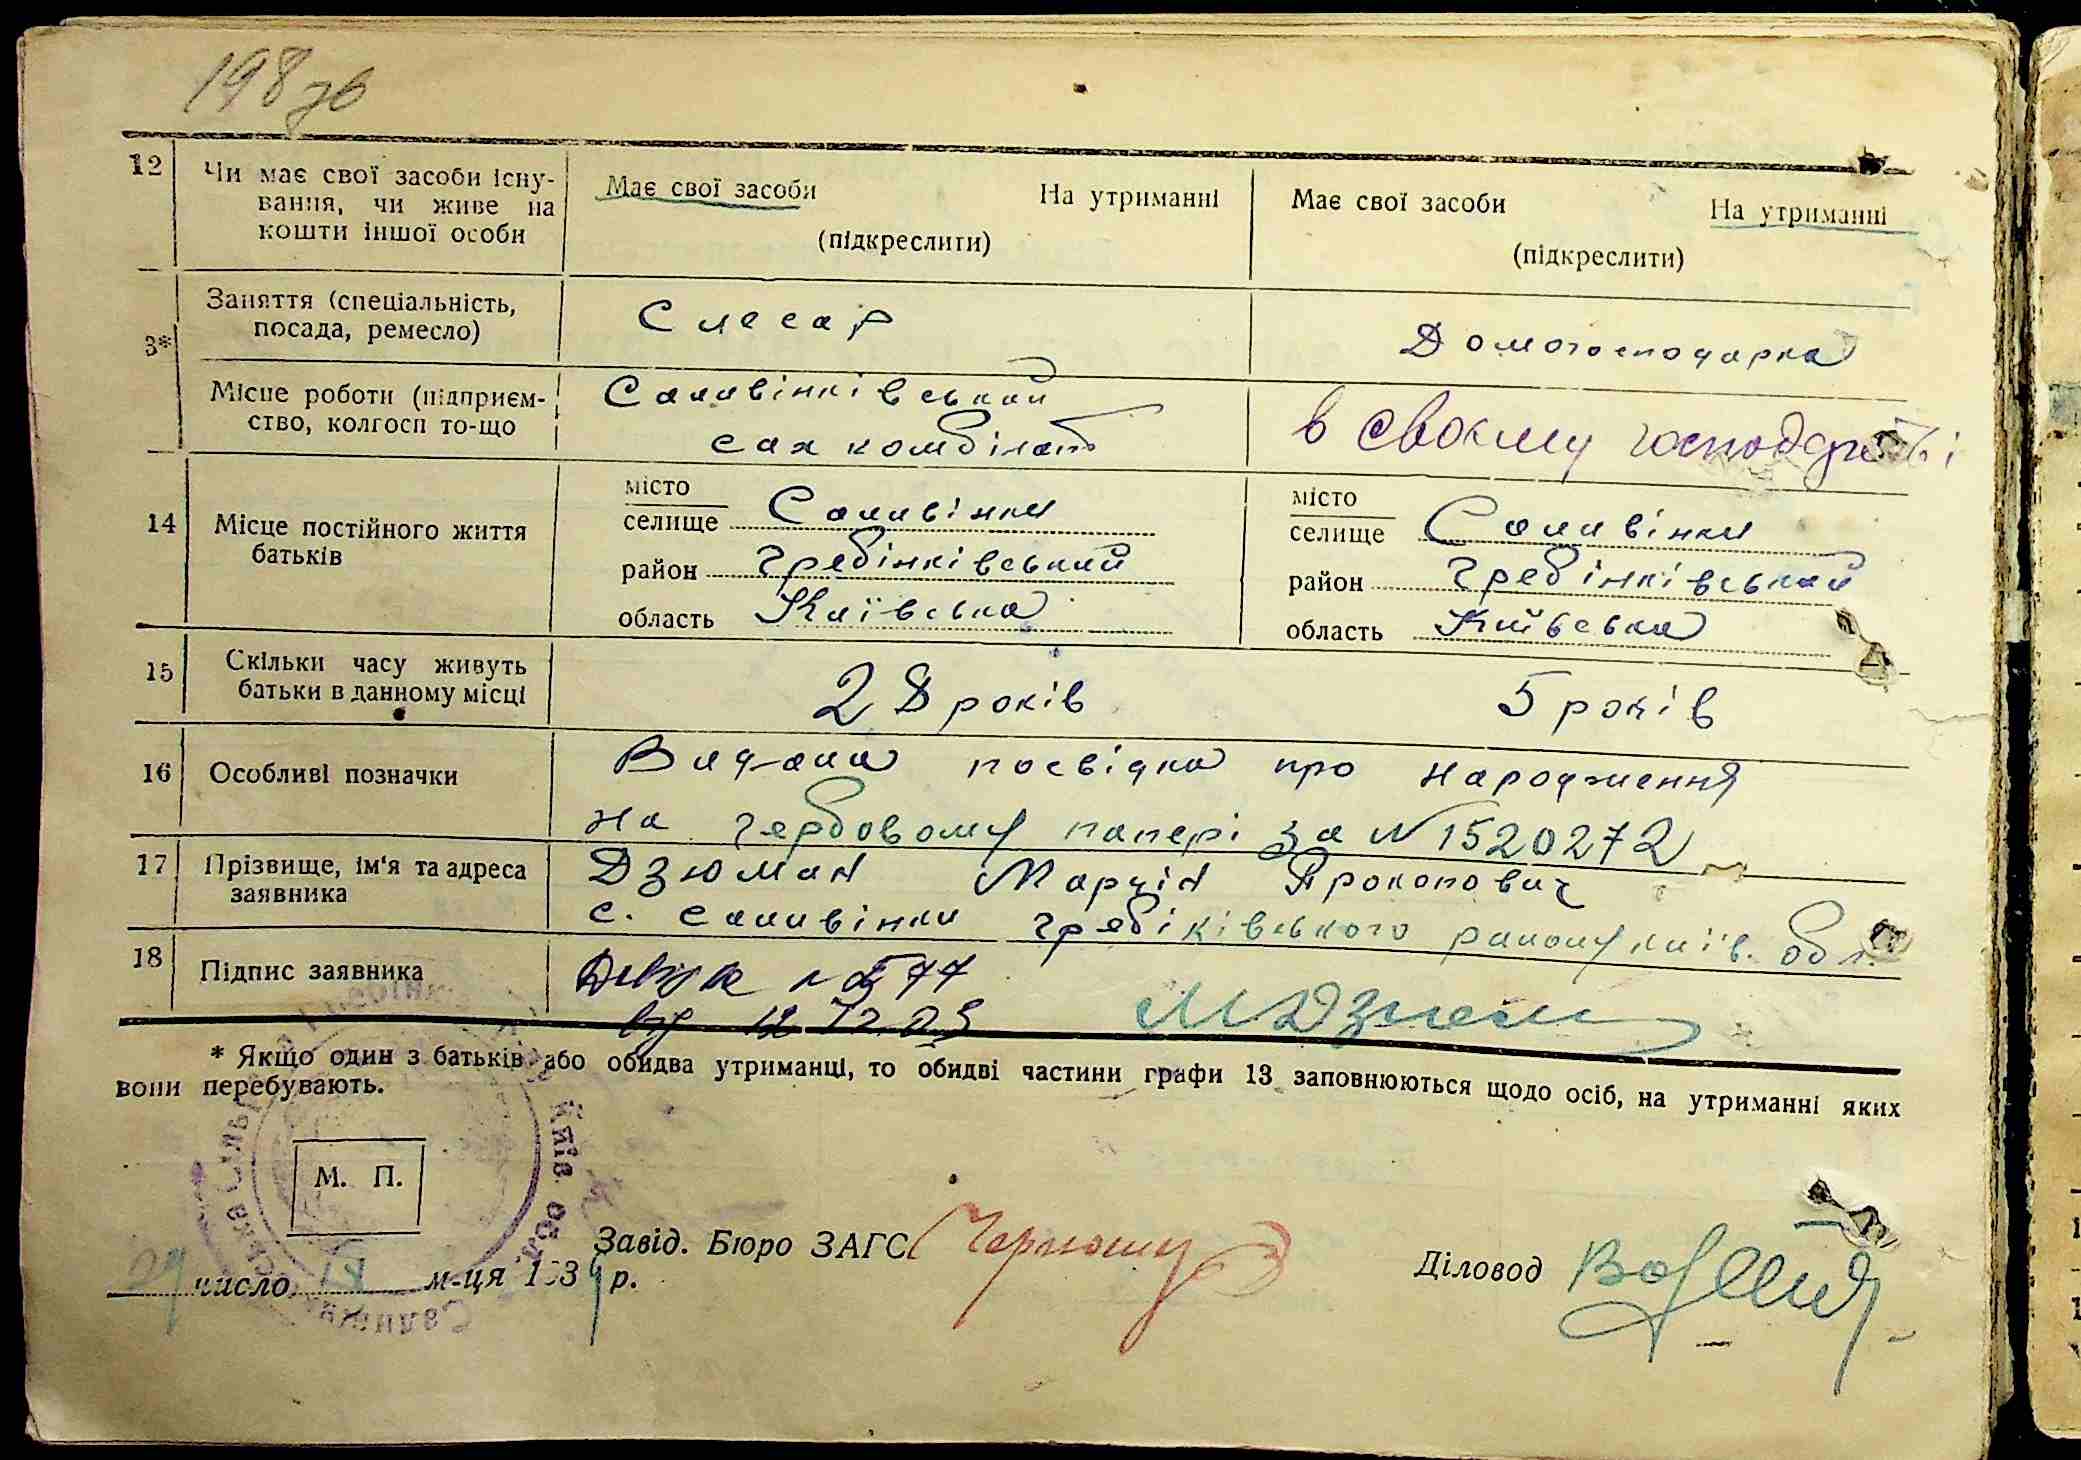 198 зв
12 Чи має свої засоби існу-
вання, чи живе на
кошти іншої особи
Має свої засоби На утриманні
(підкреслити)
Має свої засоби На утриманні
(підкреслити)
3* Заняття (спеціальність,
посада, ремесло)
Слесар
Домогосподарка
Місце роботи (підприєм-
ство, колгосп то-що
Саливінківський
сах комбінат
в своєму господарстві
14 Місце постійного життя
батьків
місто
селище Саливінки
район Гребінківський
область Київська
місто
селище Саливінки
район Гребінківський
область Київська
15 Скільки часу живуть
батьки в данному місці
28 років
5 років
16 Особливі позначки
Видана посвідка про народження
на гербовому папері за №1520272
17 Прізвище, ім'я та адреса
заявника
Дзюман Марцін Прокопович
с. Саливінки Гребіківського району київ. обл.
18 Підпис заявника
МДзюман
* Якщо один з батьків або обидва утриманці, то обидві частини графи 13 заповнюються щодо осіб, на утриманні яких
вони перебувають.
М. П.
Київ обл.
Завід. Бюро ЗАГС
Діловод
29 число IX м-ця 1939 р.